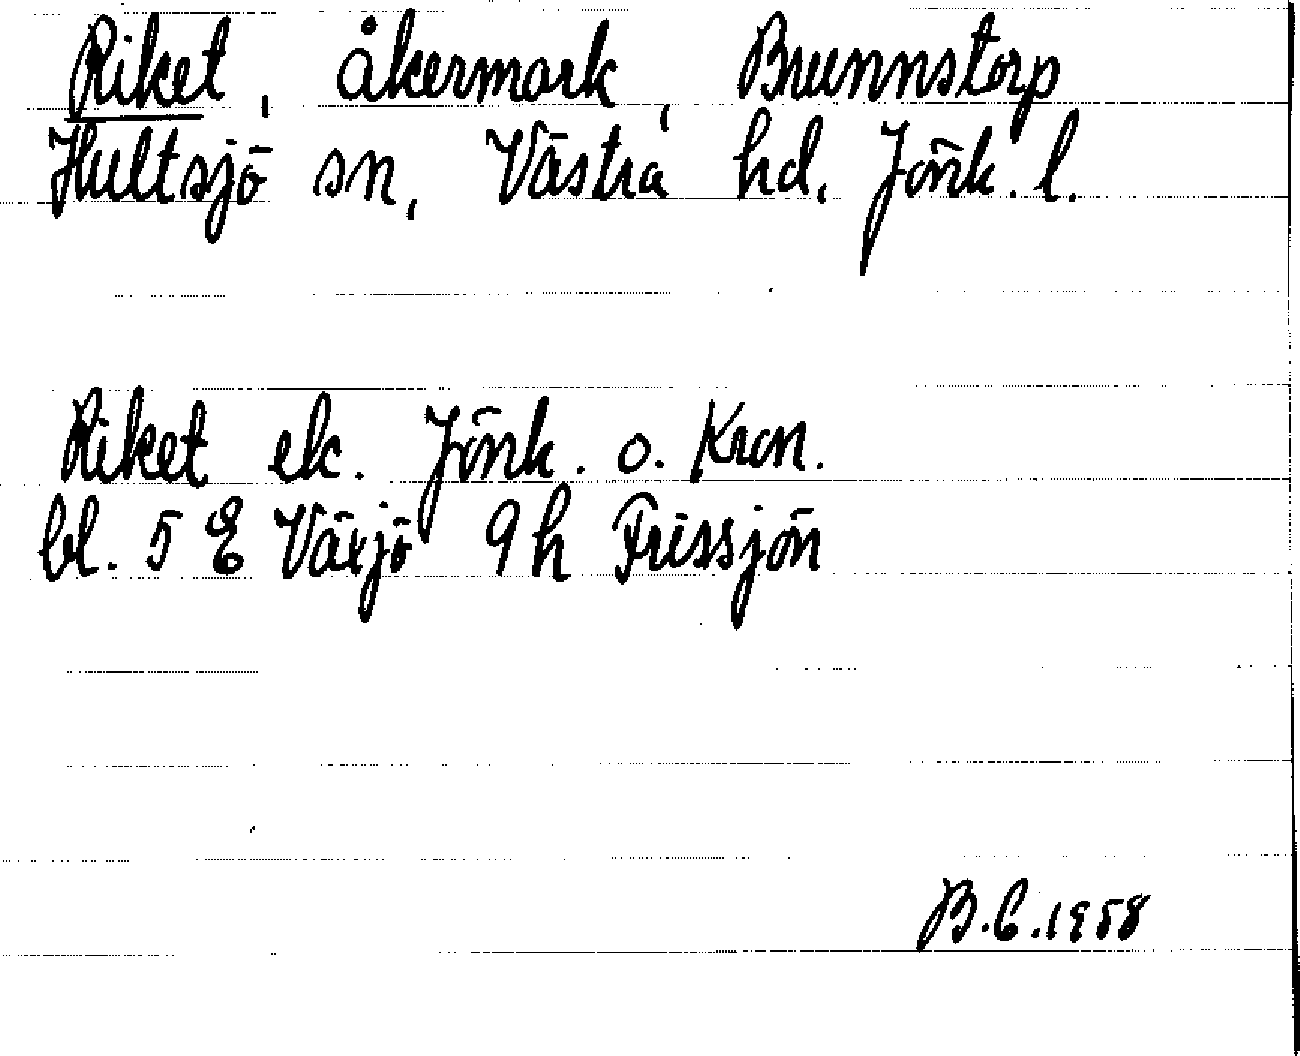 Riket, åkermark, Brunnstorp
Hultsjö sn, Västra hd, Jönk. l.
Riket ek. Jönk. o. Kron.
bl. 5 E Växjö 9 h Frissjön
B.C. 1958